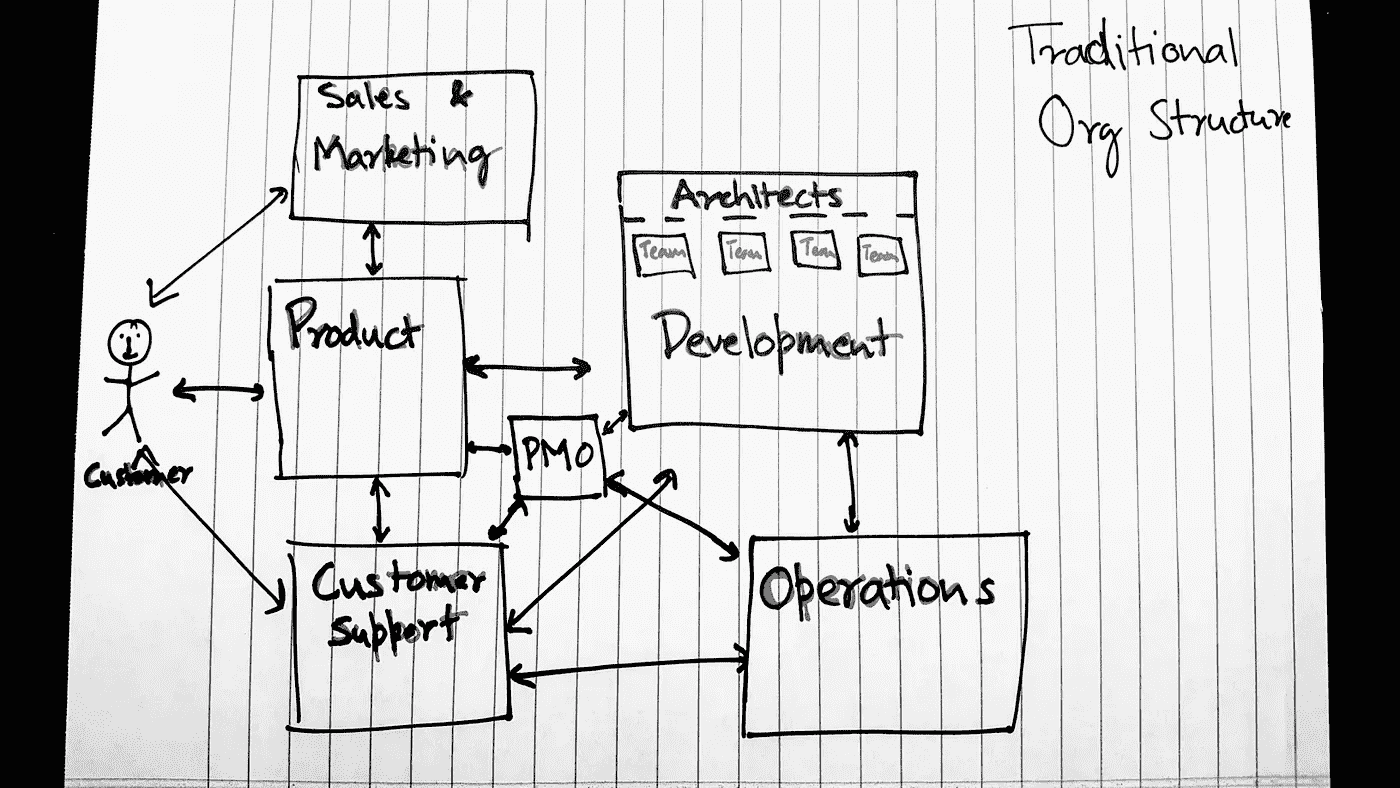 Traditional
Org Structure
Sales &
Marketing
Architects
Team
Team
Team
Team
Product
Development
PMO
Customer
Customer
Support
Operations